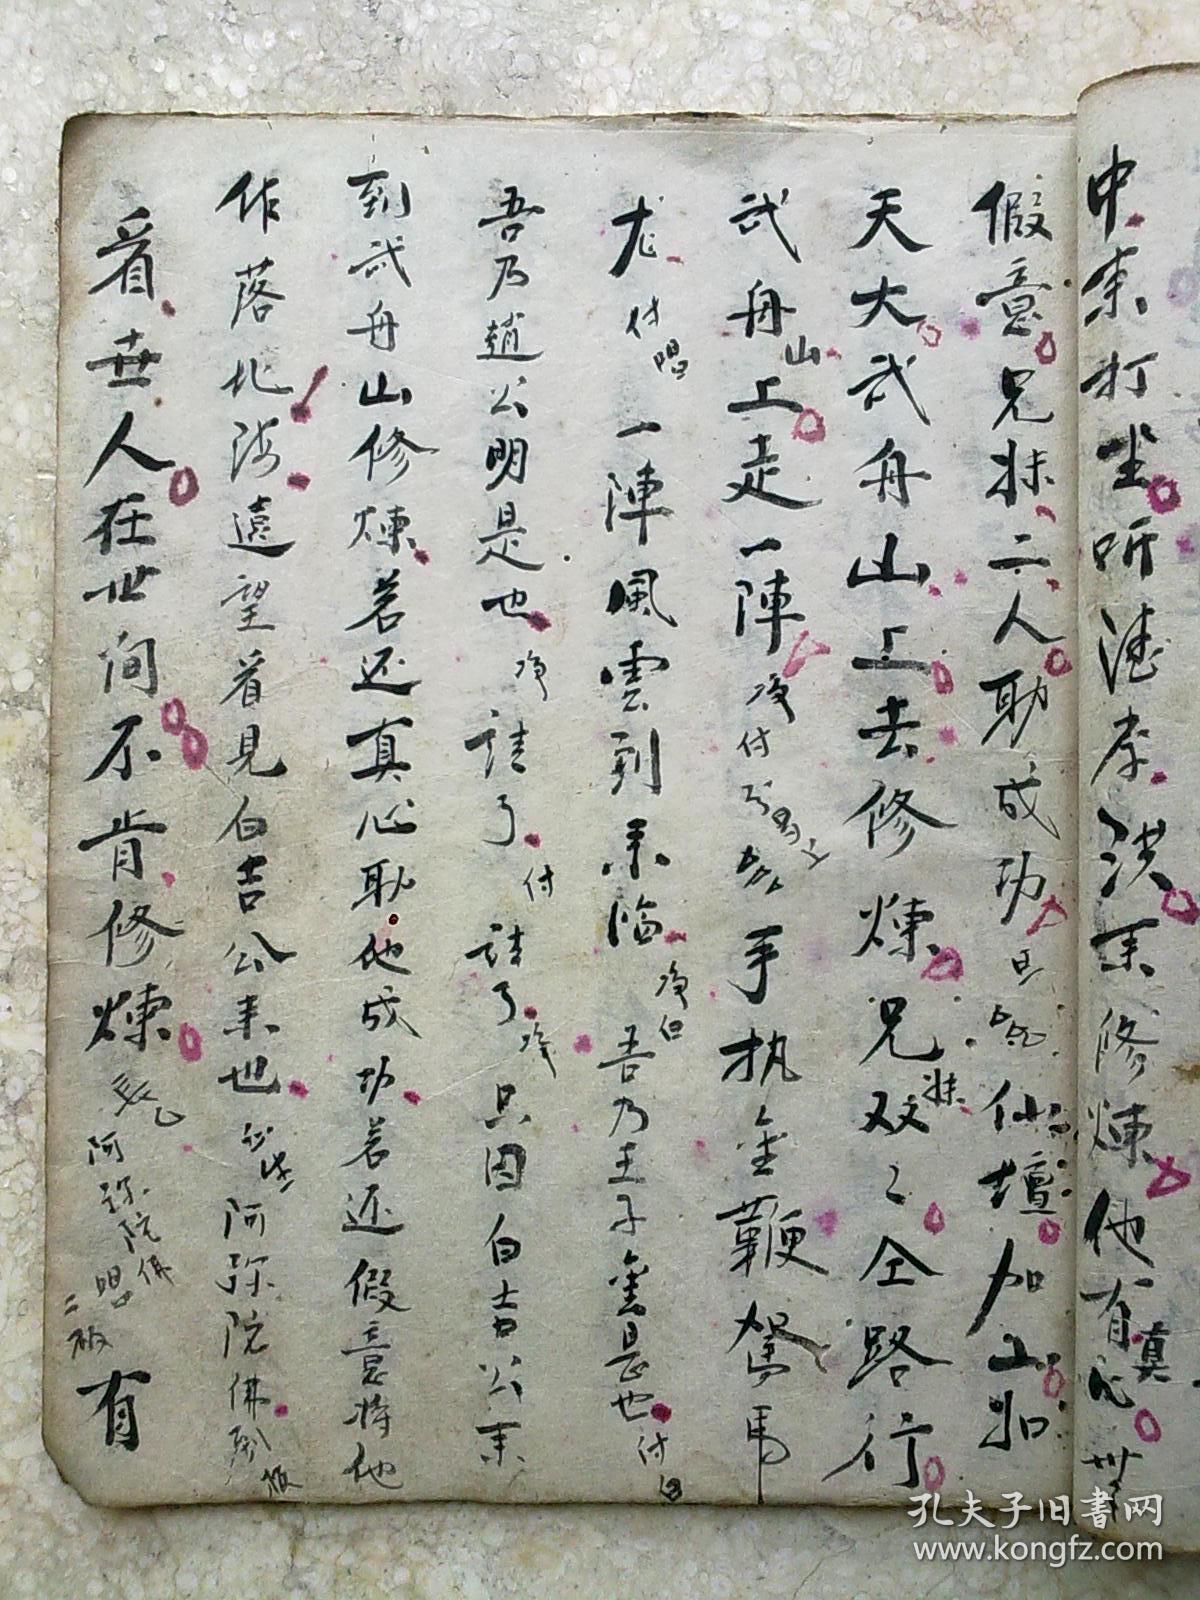 中來打坐听漣孝洪來修煉他有真心
假意兄妹二人助成功旦唱仙壇加上
天大武舟山上去修煉兄妹双々仝路行
武舟山上走一陣净付手执金鞭駕馬
尤付唱一陣風雲到來臨净白吾乃王子金是也付白
吾乃趙公明是也净請了付請了净只因白吉公來
到武舟山修煉若还真心助他成功若还假意将他
作落北海遠望着見白吉公來也阿弥陀佛
看世人在世间不肯修煉阿弥陀佛唱二板有
孔夫子旧书网
www.kongfz.com